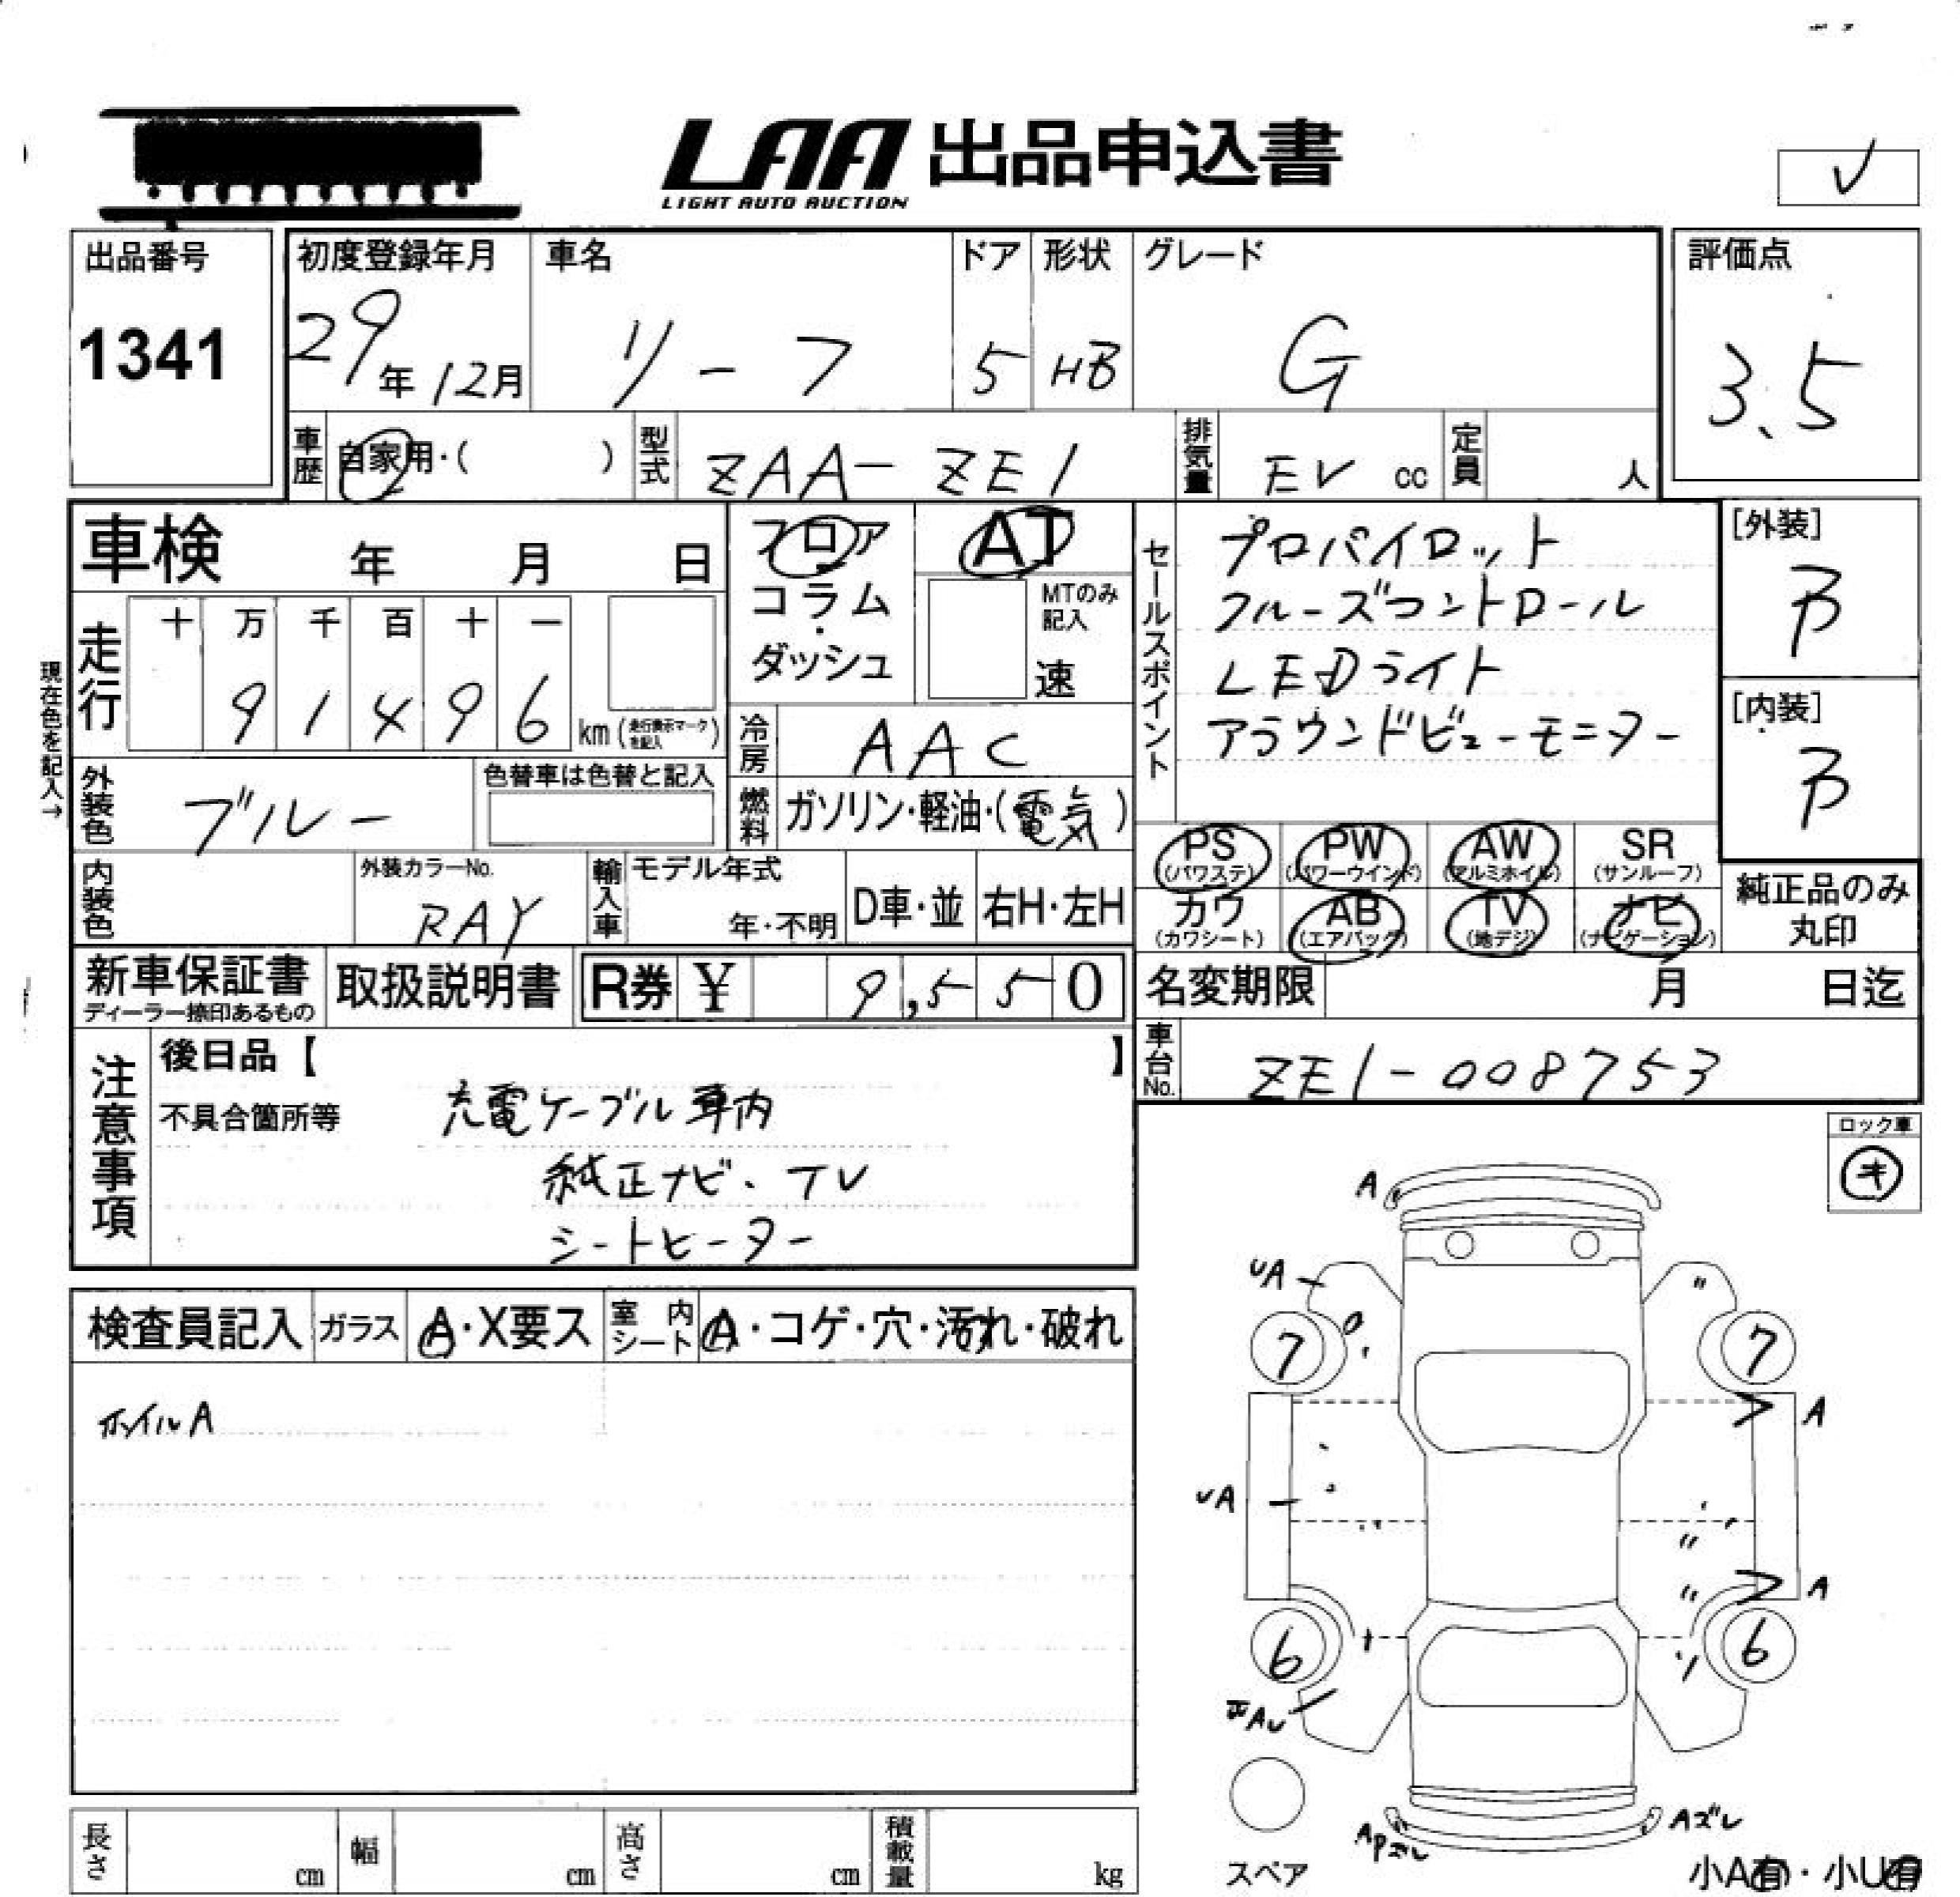 LAA 出品申込書
LIGHT AUTO AUCTION
出品番号
1341
初度登録年月
29年12月
車名
リーフ
ドア
5
形状
HB
グレード
G
評価点
3.5
車歴
自家用・( )
型式
ZAA-ZE1
排気量
EV cc
定員
人
車検 年 月 日
フロア
コラム・ダッシュ
AT
MTのみ記入
速
セールスポイント
プロパイロット
クルーズコントロール
LEDライト
アラウンドビューモニター
[外装]
B
[内装]
B
現在色を記入→
走行
十 万 千 百 十 一
9 1 4 9 6 km (走行表示マークを記入)
冷房
AAC
外装色
ブルー
色替車は色替と記入
燃料
ガソリン・軽油・(電気)
内装色
外装カラーNo.
RAY
輸入車
モデル年式
年・不明
D車・並
右H・左H
PS (パワステ)
PW (パワーウインド)
AW (アルミホイル)
SR (サンルーフ)
カワ (カワシート)
AB (エアバック)
TV (地デジ)
ナビ (ナビゲーション)
純正品のみ丸印
新車保証書
ディーラー捺印あるもの
取扱説明書
R券 ¥ 9,550
名変期限 月 日迄
車台No.
ZE1-008753
注意事項
後日品【 】
不具合箇所等
充電ケーブル車内
純正ナビ、TV
シートヒーター
ロック車
キ
検査員記入
ガラス
A・X要ス
室内シート
A・コゲ・穴・汚れ・破れ
ホイルA
A
UA
7
7
A
UA
A
6
6
Aズレ
スペア
小A有・小U有
長さ cm
幅 cm
高さ cm
積載量 kg